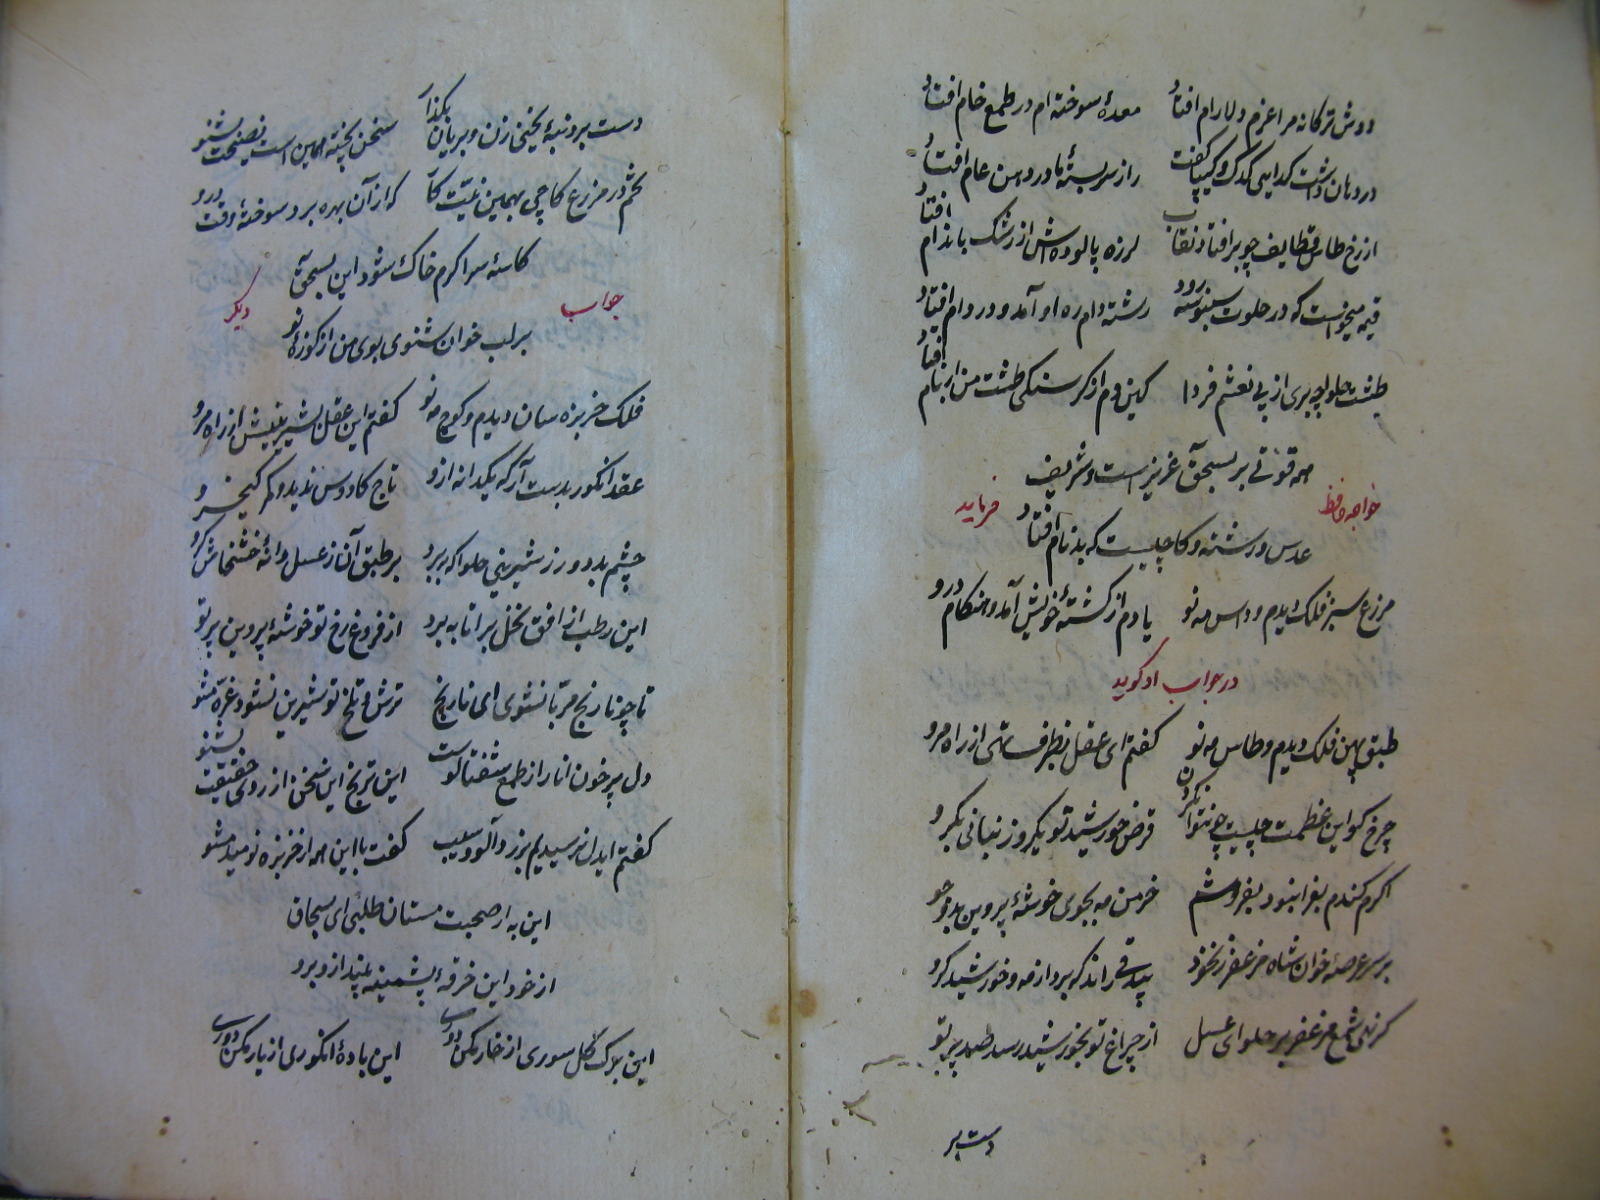 دوش ترکانه مرا عزم دلارام افتاد معدهٔ سوخته ام در طمع خام افتاد
در دهان داشت کدایی کدک و کیپا کفت راز سربستهٔ ما در دهن عام افتاد
از رخ طاس قطایف چو برافتاد نقاب لرزه پالوده اش از رشک باندام افتاد
قیمه میخواست که در حلوت سنبوسه رود رشته دام ره او آمد و در دام افتاد
طشت حلوا چه بری از پی نعشم فردا کین دم از کرسنکی طشت من از بام افتاد
همه قوتی بر بسحق عزیز است و شریف
خواجه حافظ فرماید
عدس و رشته و کاچیست که بدنام افتاد
مزرع سبز فلک دیدم و داس مه نو یادم از کشتهٔ خویش آمد و هنکام درو
در جواب او کوید
طبق پهن فلک دیدم و طاس مه نو کفتم ای عقل بظرف تهی از راه مرو
چرخ کو این عظمت چیست چو نتوان کردن قرص خورشید تو یکروز بنانی بکرو
اکرم کندم بغرا نبود بفروشم خرمن مه بجوی خوشهٔ پروین بدو جو
بر سر عرصهٔ خوان شاه مزعفر رخ خود بیدقی راند که برد از مه و خورشید کرو
کر نهی شمع مزعفر بر حلوای عسل از چراغ تو بخورشید رسد صد پرتو
دست بر
دست بر دنبهٔ یخنی زن و بریان بکذار سخن پخته همین است نصیحت بشنو
تخم در مزرع کاچی بهمین نیت کار که از آن بهره برد سوختهٔ وقت درو
کاسهٔ سر اکرم خاک شود این بسحق
جواب دیکر
بر لب خوان شنوی بوی من از کوزهٔ نو
فلک خربزه سان دیدم و کوچ مه نو کفتم این عقل بشیرینیش از راه مرو
عقد انکور بدست آر که یکدانه ازو تاج کاوس ندید و کمر کیخسرو
چشم بد دور ز شیرینی حلوا که ببرد بر طبق آن ز عسل دانهٔ خشخاش کرو
این رطب از افق نخل برانسا به برد از فروغ رخ تو خوشهٔ پروین پرتو
تا چو نارنج مربا نشوی ای نارنج ترش و تلخ تو شیرین نشود غره مشو
دل پر خون انار از طمع شفتالوست این ترنج این سخن از روی حقیقت بشنو
کفتم ایدل نرسیدیم بزردآلو و سیب کفت با این همه از خربزه نومید مشو
این به از صحبت مستان طلبی ای بسحاق
از خود این خرقهٔ پشمینه بینداز و برو
این برک کل سوری از خار مکن دوری این بادهٔ انکوری از یار مکن دوری